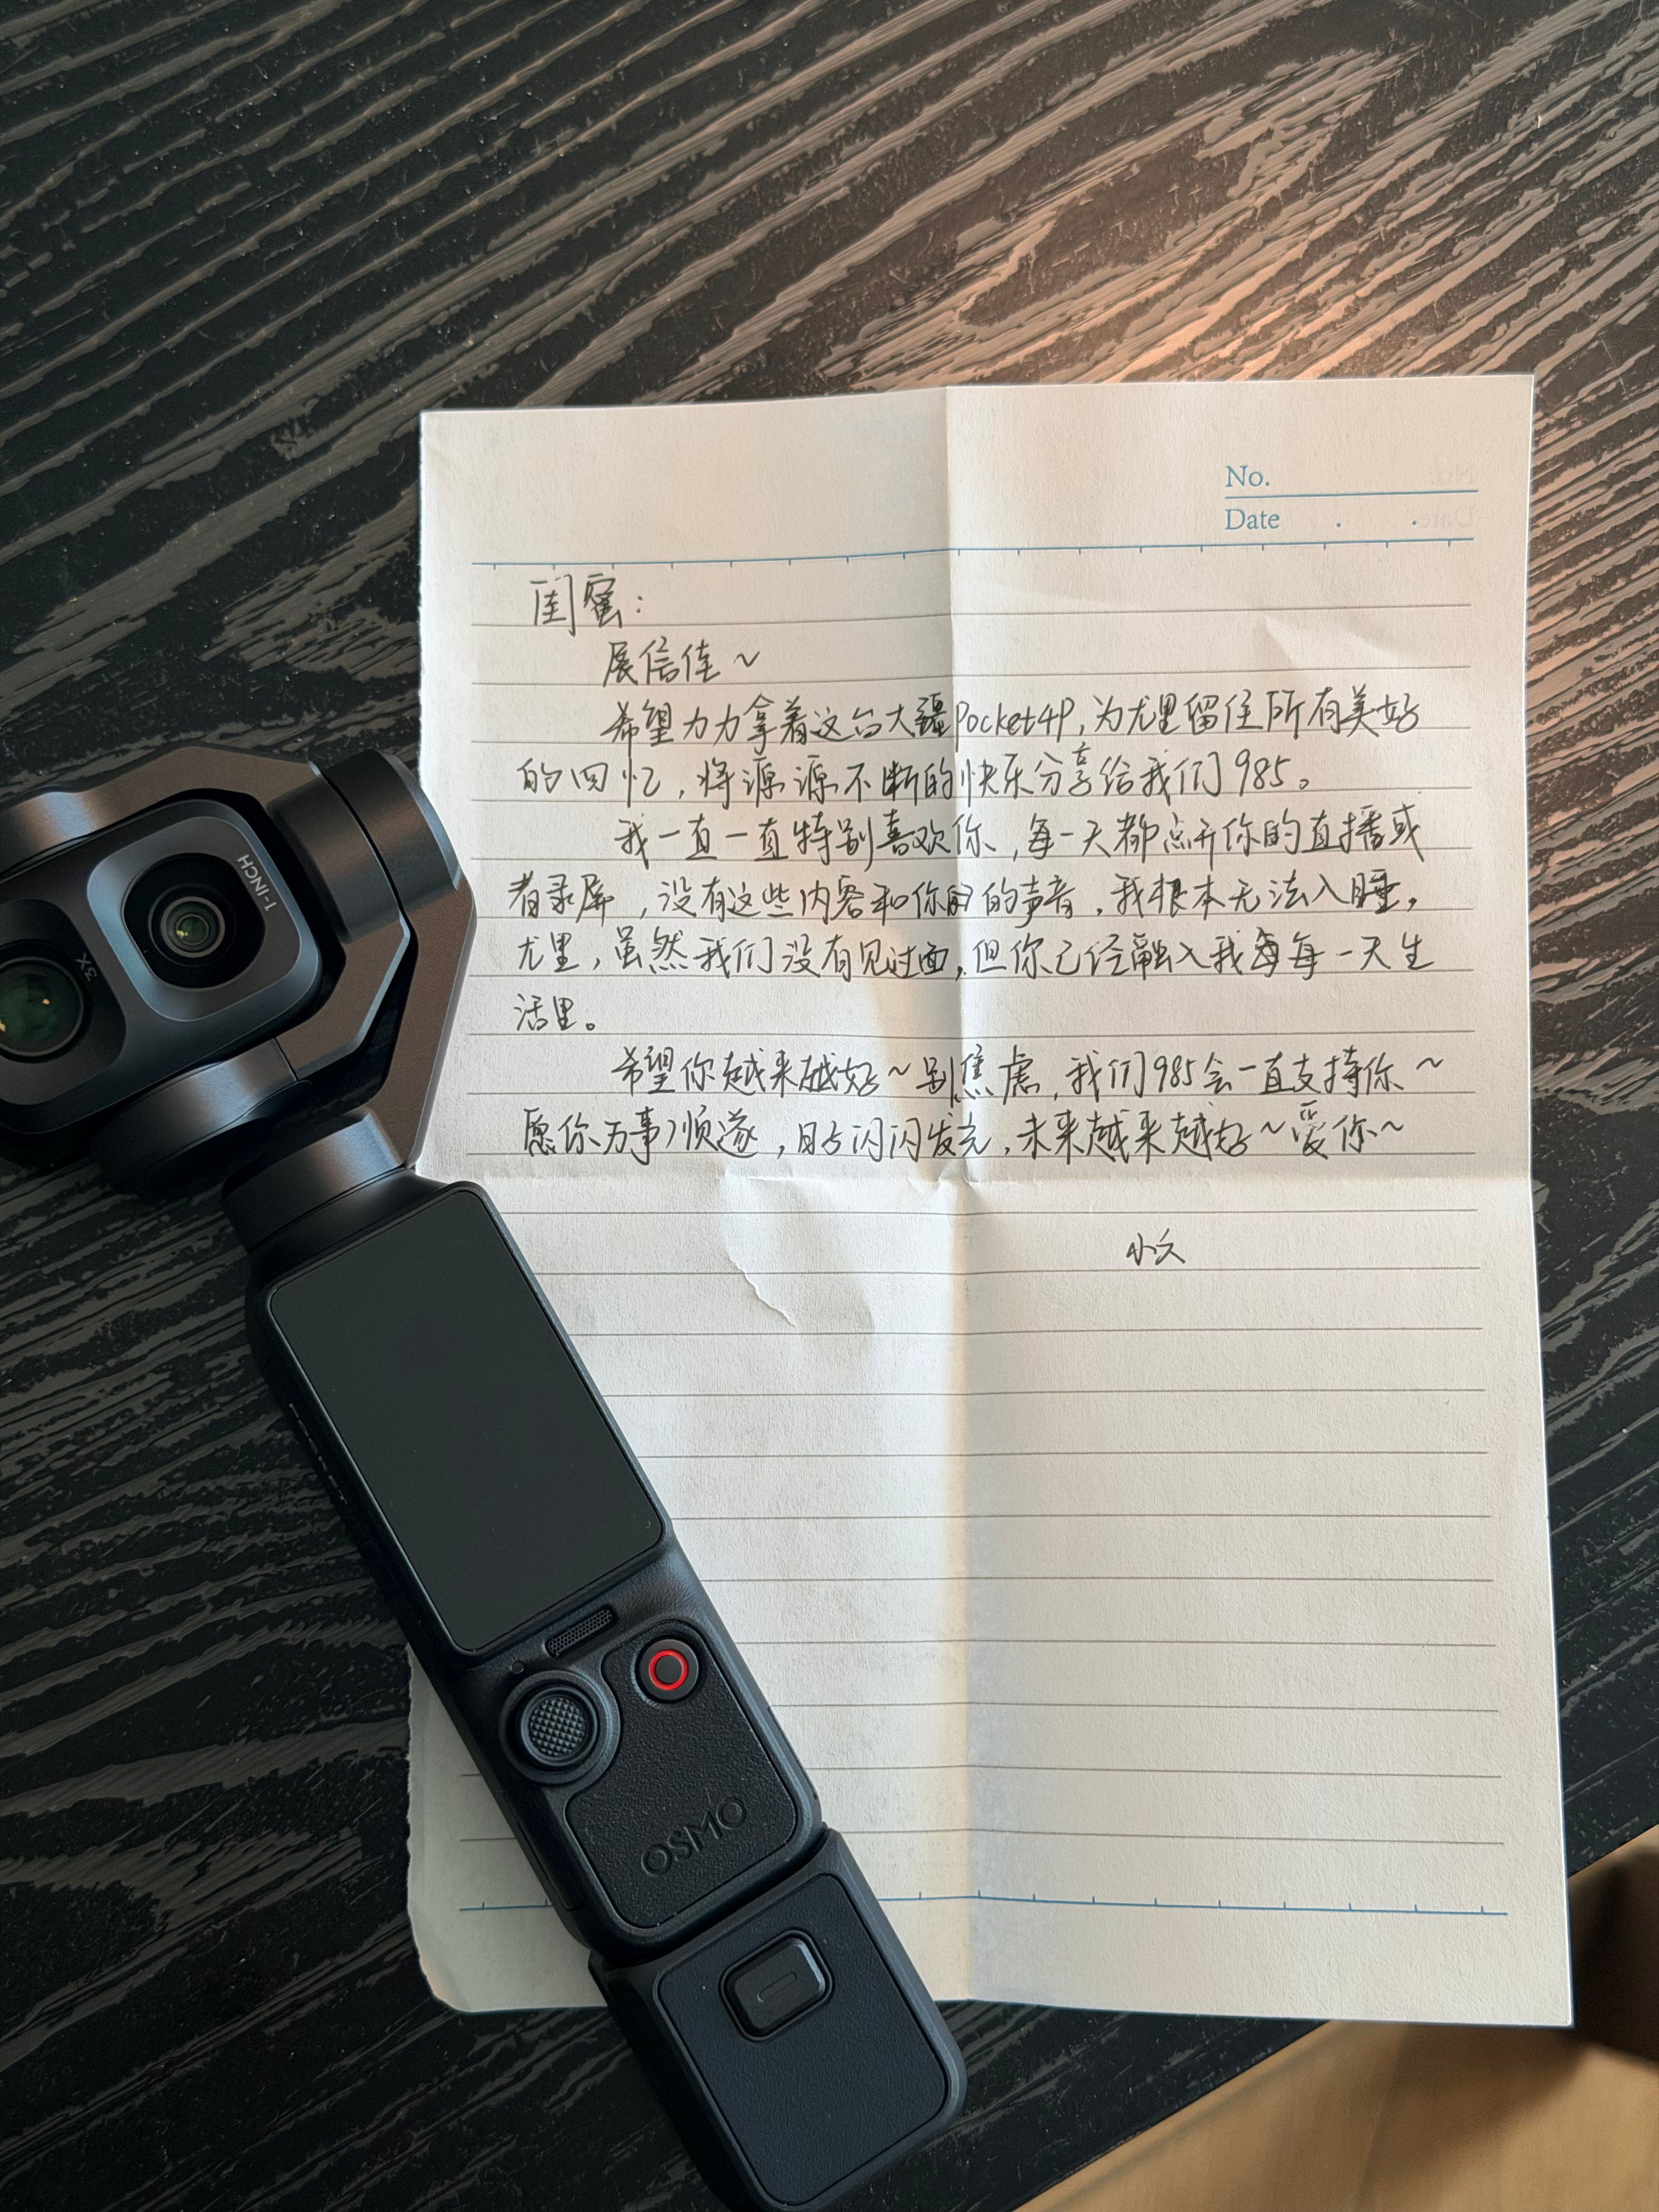 No.
Date
闺蜜：
展信佳～
希望力力拿着这台大疆Pocket4P，为尤里留住所有美好
的回忆，将源源不断的快乐分享给我们985。
我一直一直特别喜欢你，每一天都点开你的直播或
者录屏，没有这些内容和你的的声音，我根本无法入睡，
尤里，虽然我们没有见过面，但你已经融入我每每一天生
活里。
希望你越来越好～别焦虑，我们985会一直支持你～
愿你万事顺遂，闪闪发光，未来越来越好～爱你～
小久
1-INCH
3X
OSMO